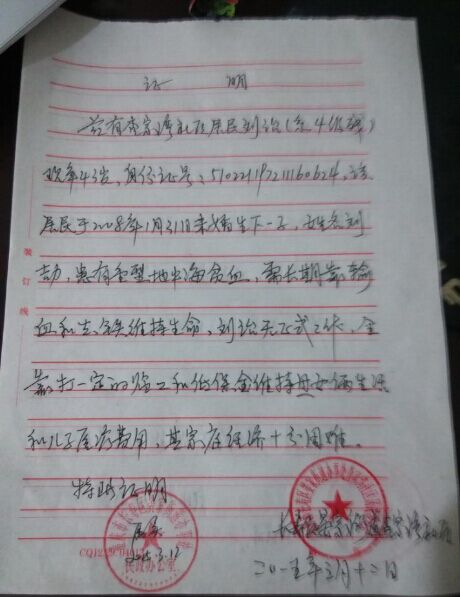 证 明
兹有李家湾社区居民刘治(系4级残)
现年43岁,身份证号:510221197211160624,该
居民于2008年1月31日未婚生下一子,姓名刘
劼,患有重型地中海贫血,需长期靠输
血和去铁维持生命,刘治无正式工作,全
靠打一定的临工和低保金维持母女俩生活
和儿子医疗费用,其家庭经济十分困难。
特此证明
属实
2015.3.12
民政办公室
二〇一五年三月十二日
装订线